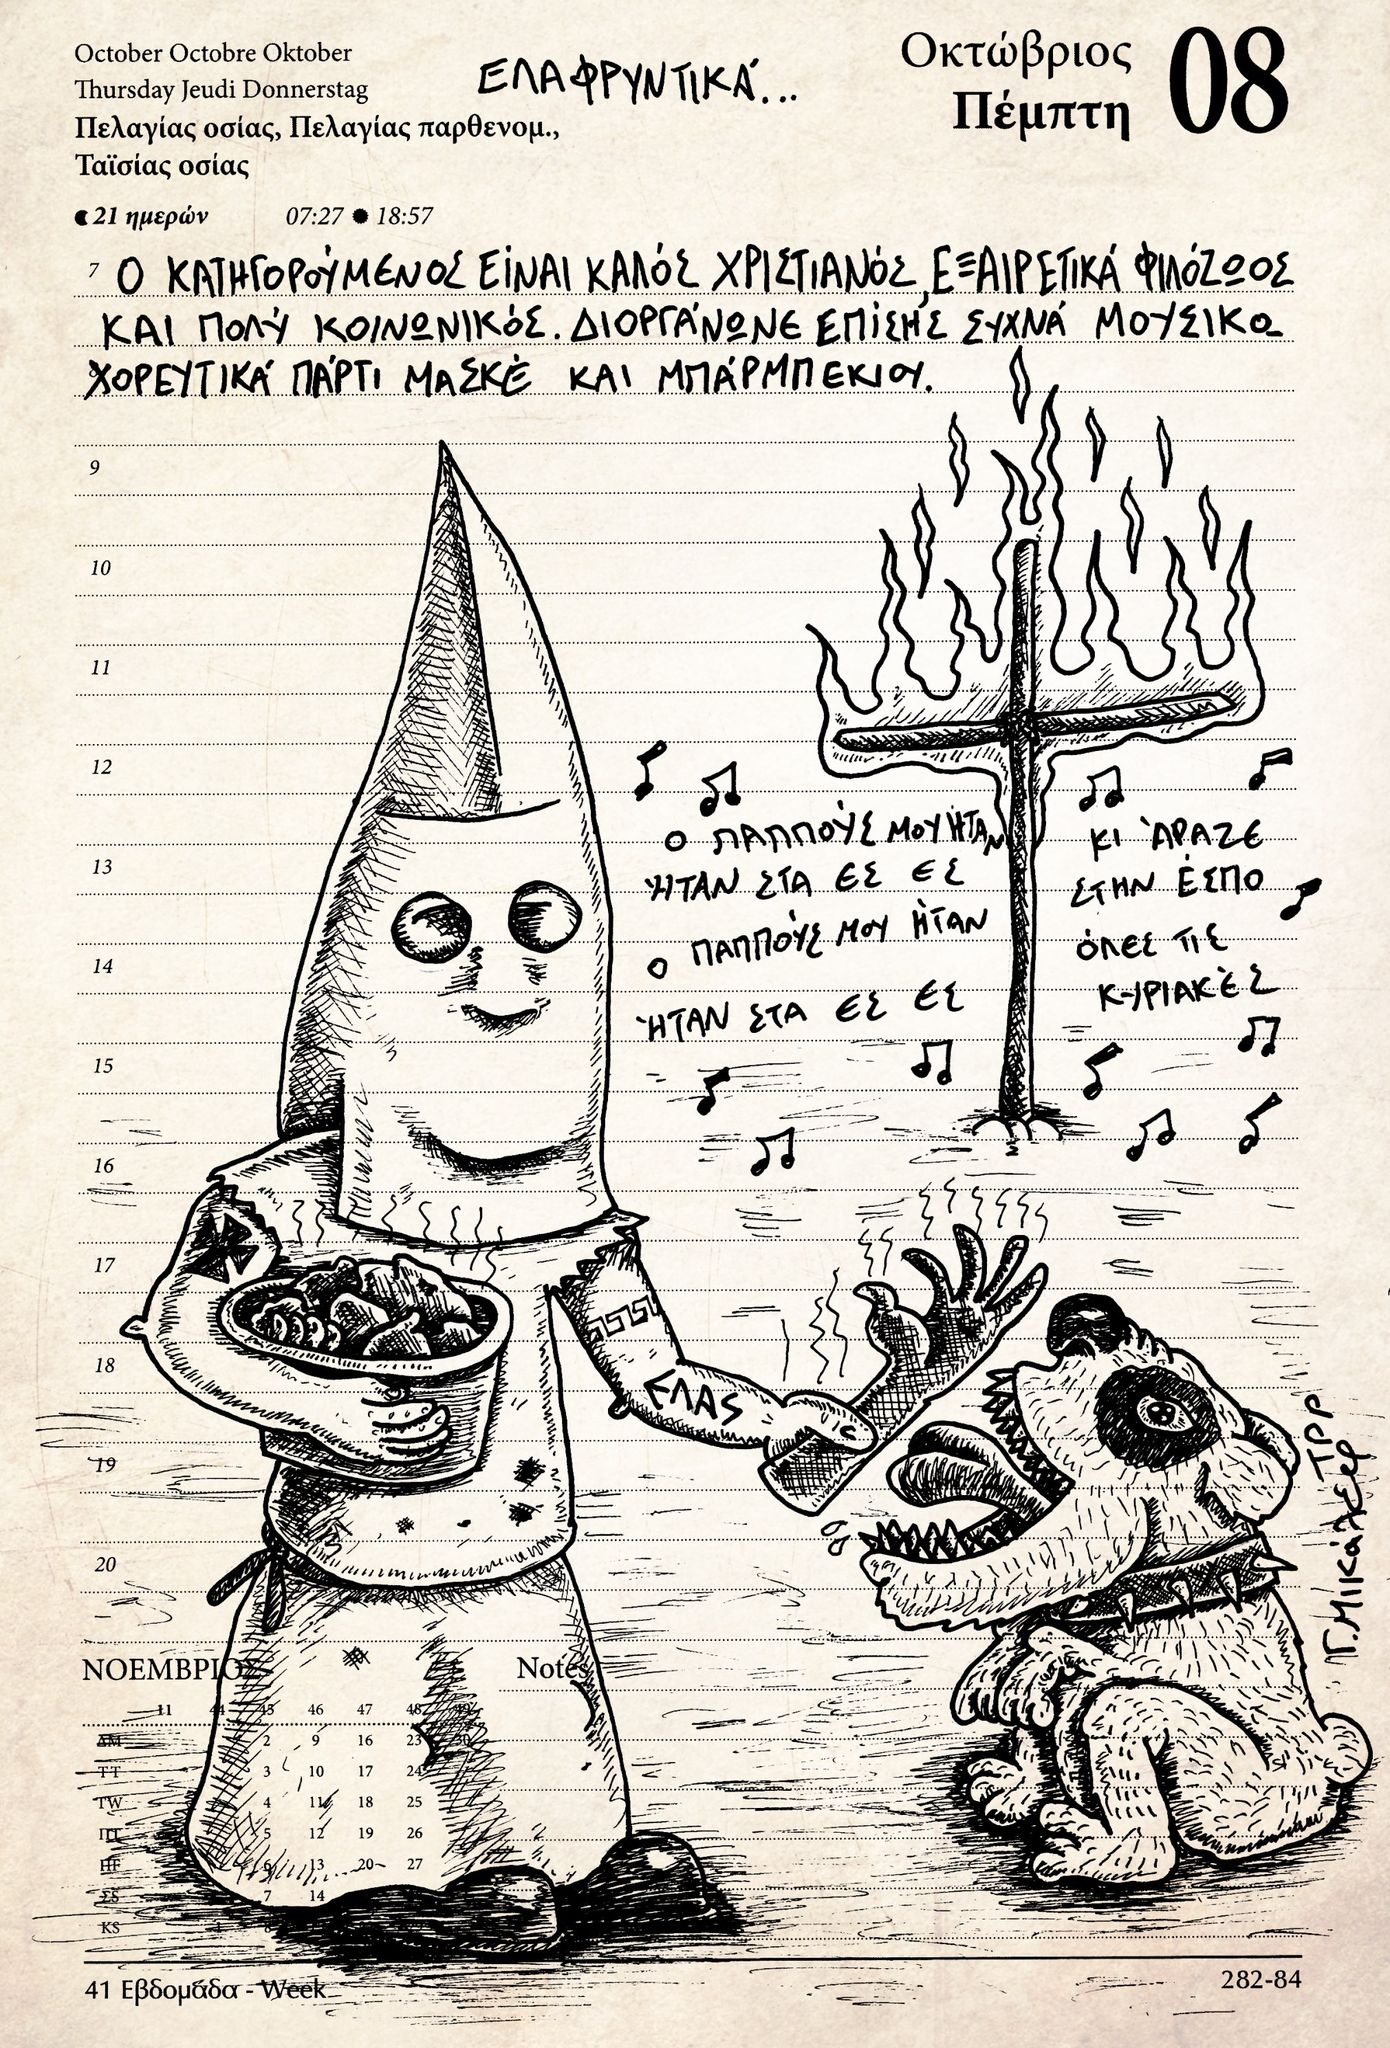 October Octobre Oktober
Thursday Jeudi Donnerstag
Πελαγίας οσίας, Πελαγίας παρθενομ.,
Ταϊσίας οσίας
21 ημερών 07:27 18:57
ΕΛΑΦΡΥΝΤΙΚΆ...
Οκτώβριος
Πέμπτη
08
7
Ο ΚΑΤΗΓΟΡΟΎΜΕΝΟΣ ΕΊΝΑΙ ΚΑΛΌΣ ΧΡΙΣΤΙΑΝΌΣ, ΕΞΑΙΡΕΤΙΚΆ ΦΙΛΌΖΩΟΣ
ΚΑΙ ΠΟΛΎ ΚΟΙΝΩΝΙΚΌΣ. ΔΙΟΡΓΆΝΩΝΕ ΕΠΊΣΗΣ ΣΥΧΝΆ ΜΟΥΣΙΚΟ
ΧΟΡΕΥΤΙΚΆ ΠΆΡΤΙ ΜΑΣΚΈ ΚΑΙ ΜΠΆΡΜΠΕΚΙΟΥ.
9
10
11
12
13
14
15
16
17
18
19
20
Ο ΠΑΠΠΟΎΣ ΜΟΥ ΉΤΑΝ
ΉΤΑΝ ΣΤΑ ΕΣ ΕΣ
Ο ΠΑΠΠΟΎΣ ΜΟΥ ΉΤΑΝ
ΉΤΑΝ ΣΤΑ ΕΣ ΕΣ
ΚΙ ΆΡΑΖΕ
ΣΤΗΝ ΈΣΠΟ
ΌΛΕΣ ΤΙΣ
ΚΥΡΙΑΚΈΣ
ΕΛΑΣ
ΤΡΡ
Γ. ΜΙΚΆΛΕΦ
ΝΟΕΜΒΡΙΟΣ
Notes
11 44 45 46 47 48 49
ΔM 2 9 16 23 30
ΤT 3 10 17 24
ΤW 4 11 18 25
ΠT 5 12 19 26
ΠF 6 13 20 27
ΣS 7 14
ΚS
41 Εβδομάδα - Week
282-84